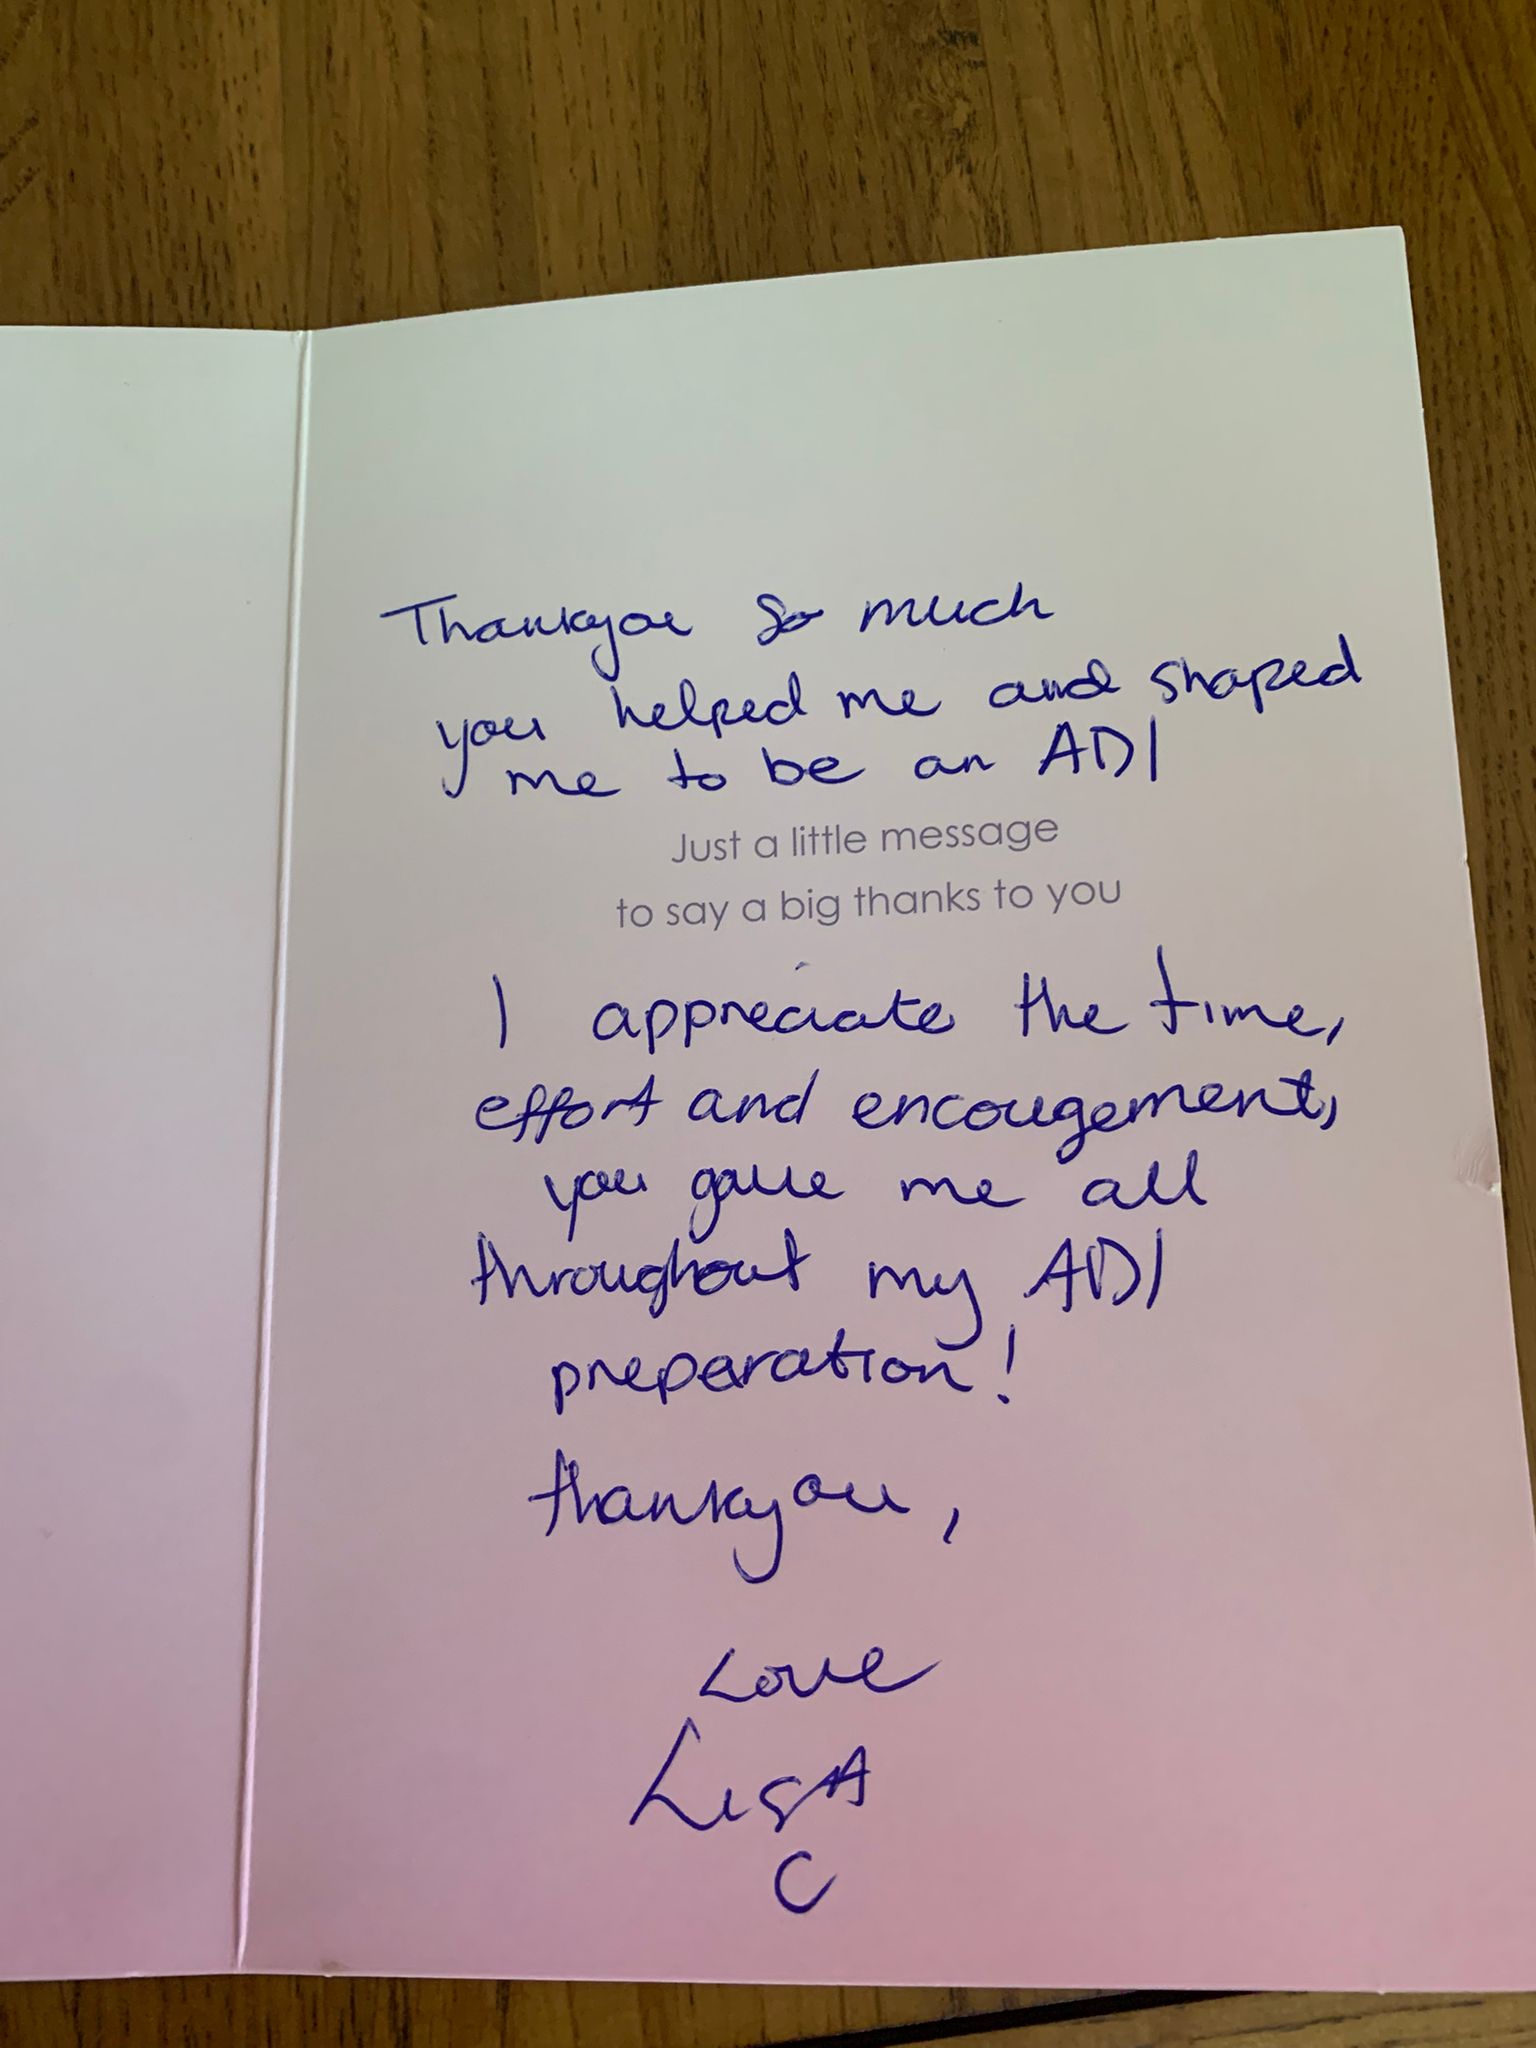 Thankyou so much
you helped me and shaped
me to be an ADI
Just a little message
to say a big thanks to you
I appreciate the time,
effort and encougement,
you gave me all
throughout my ADI
preparation!
thankyou,
Love
LisA
C